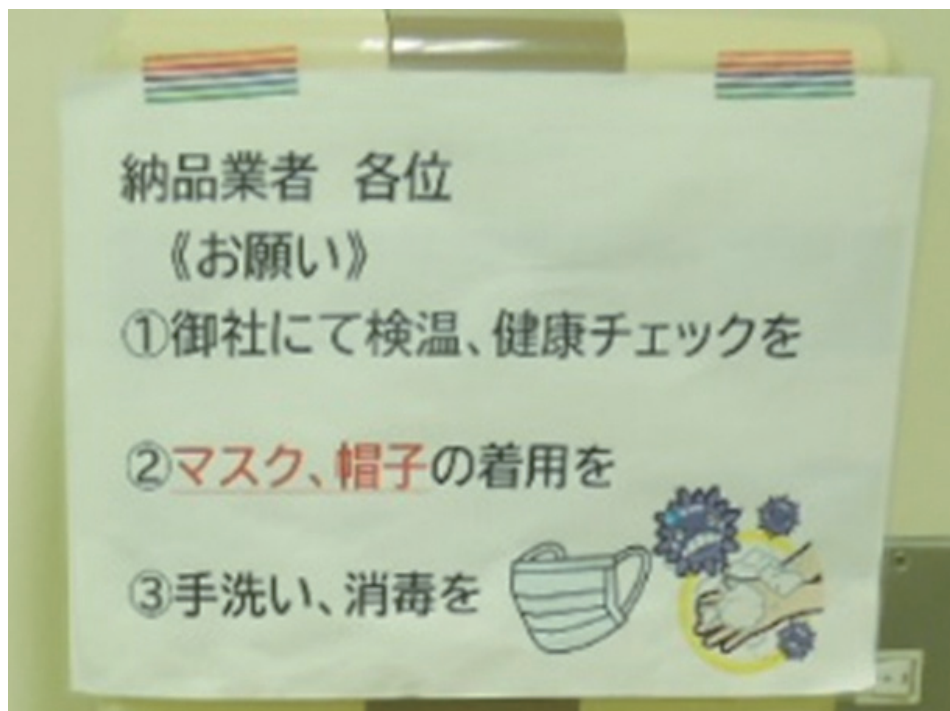 納品業者　各位
《お願い》
①御社にて検温、健康チェックを
②マスク、帽子の着用を
③手洗い、消毒を